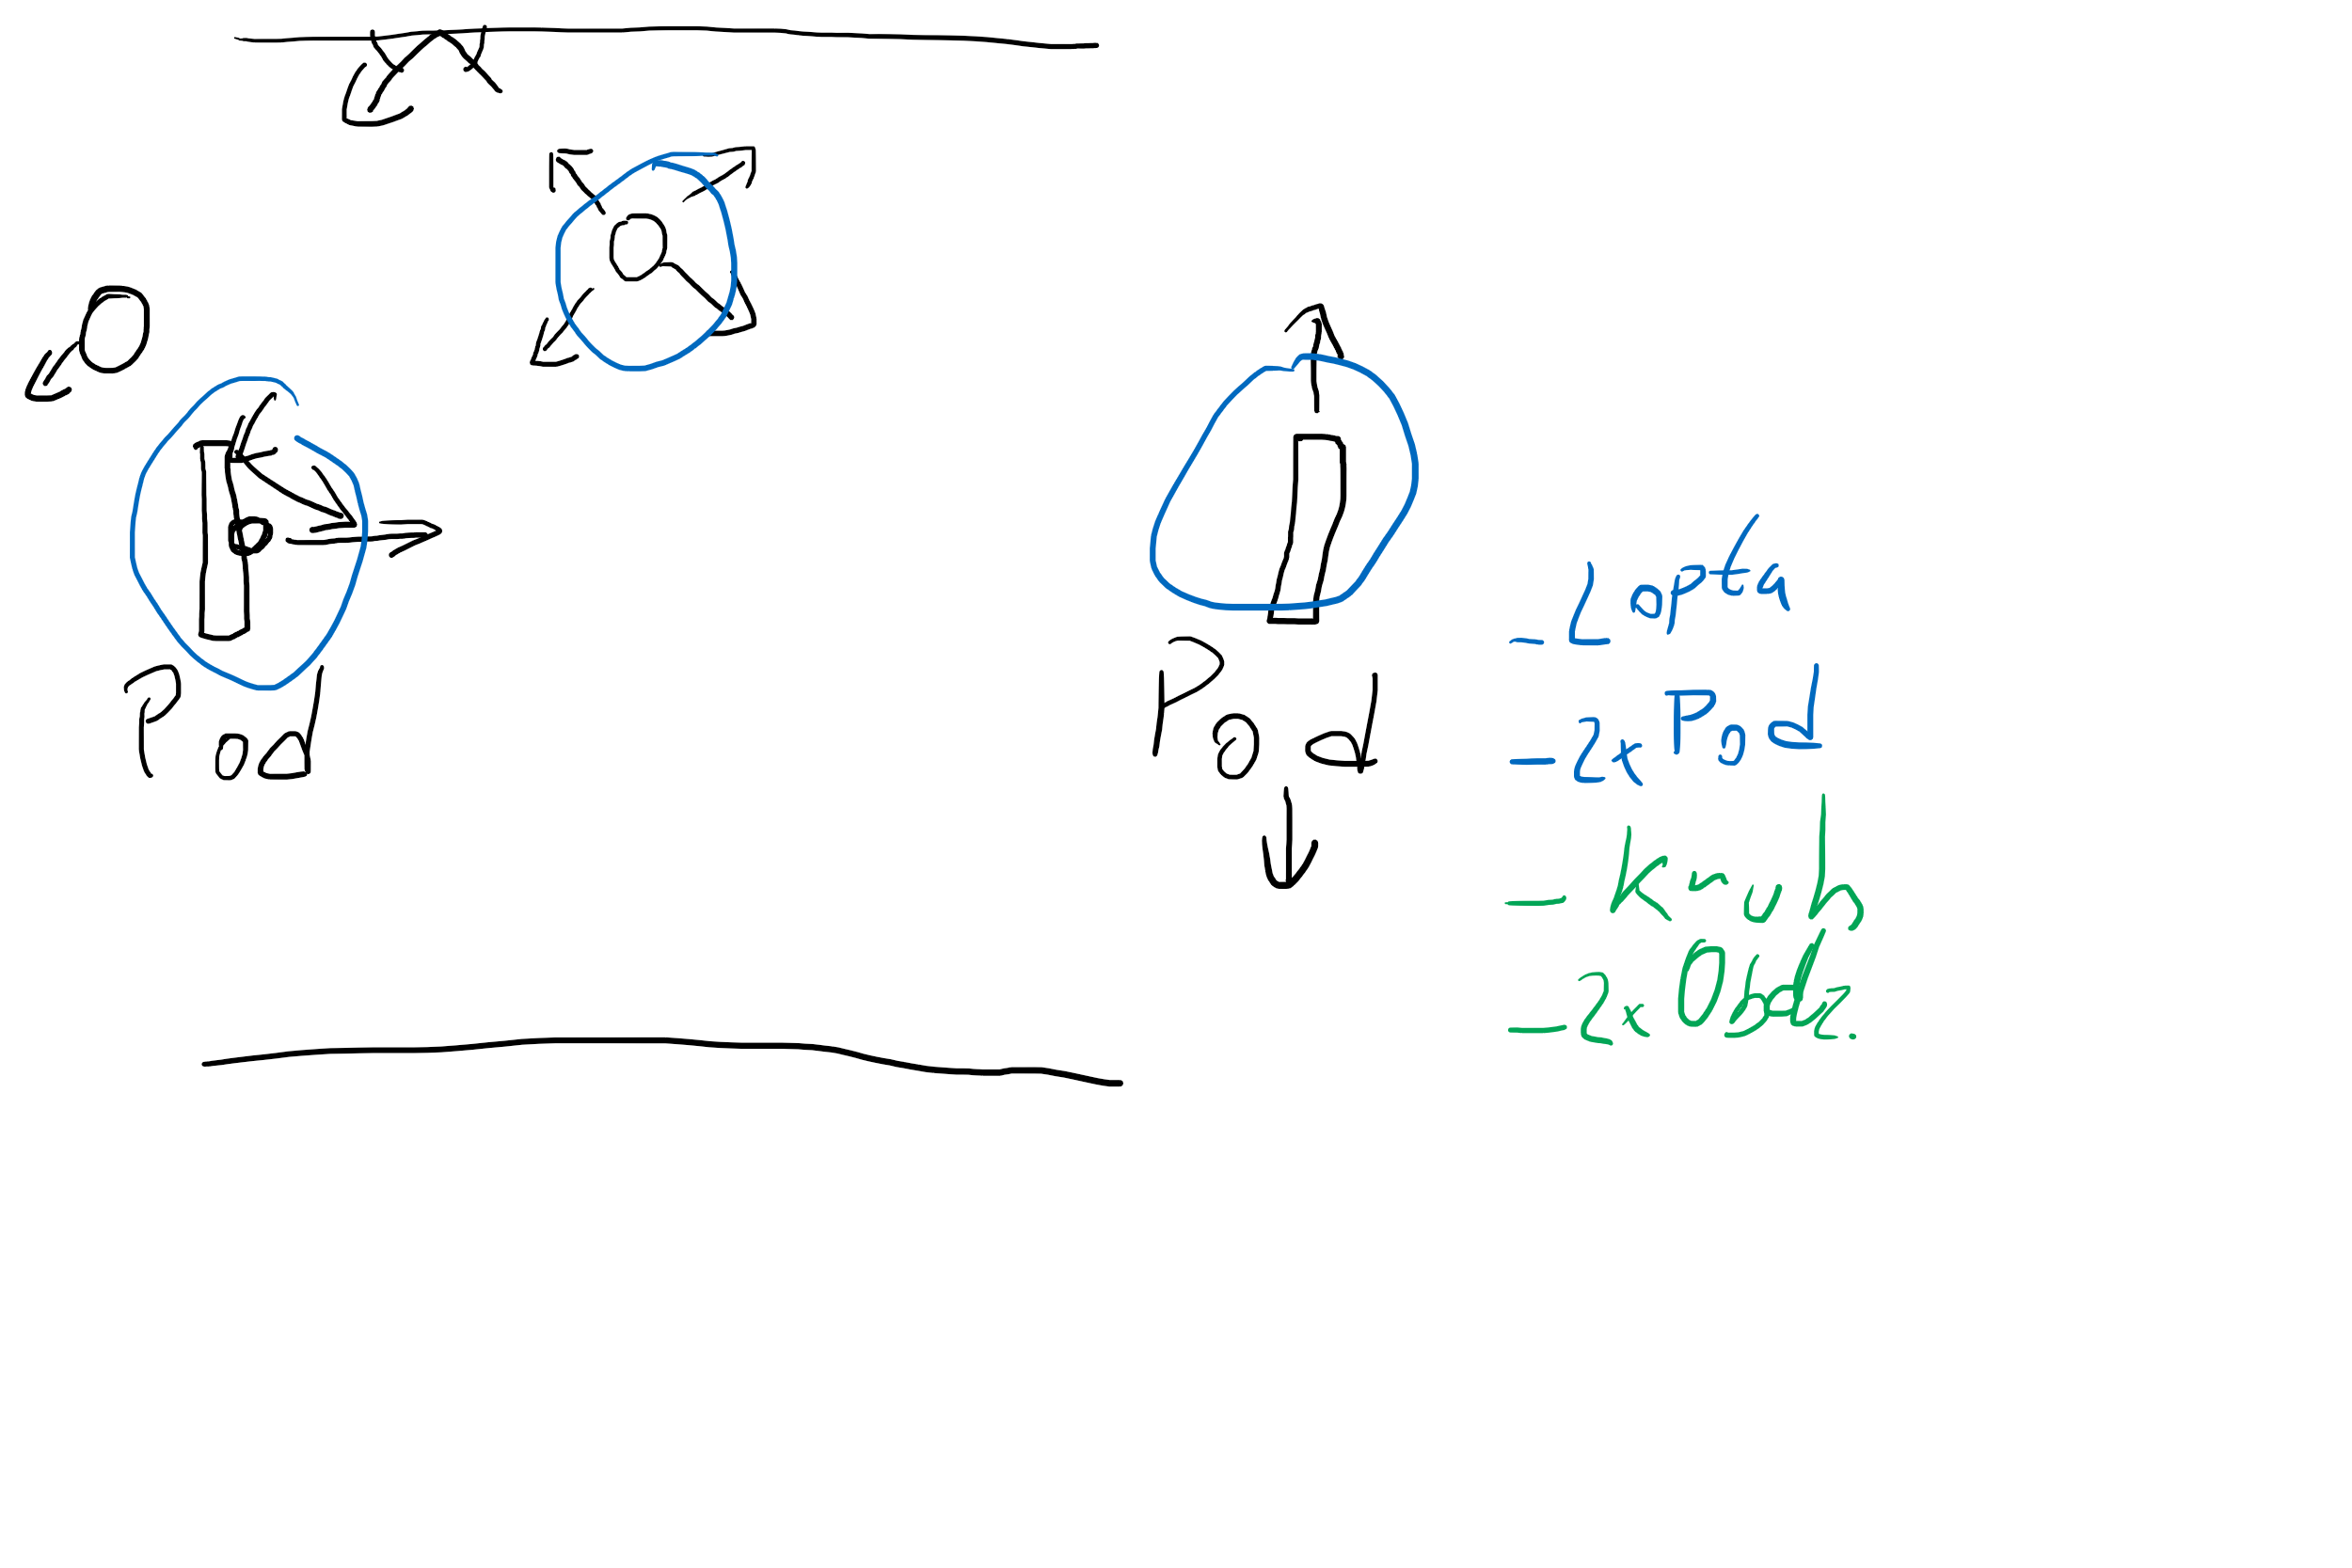 Pod
Pod
- Lopta
- 2x Pod
- Kruh
- 2x Obdz.